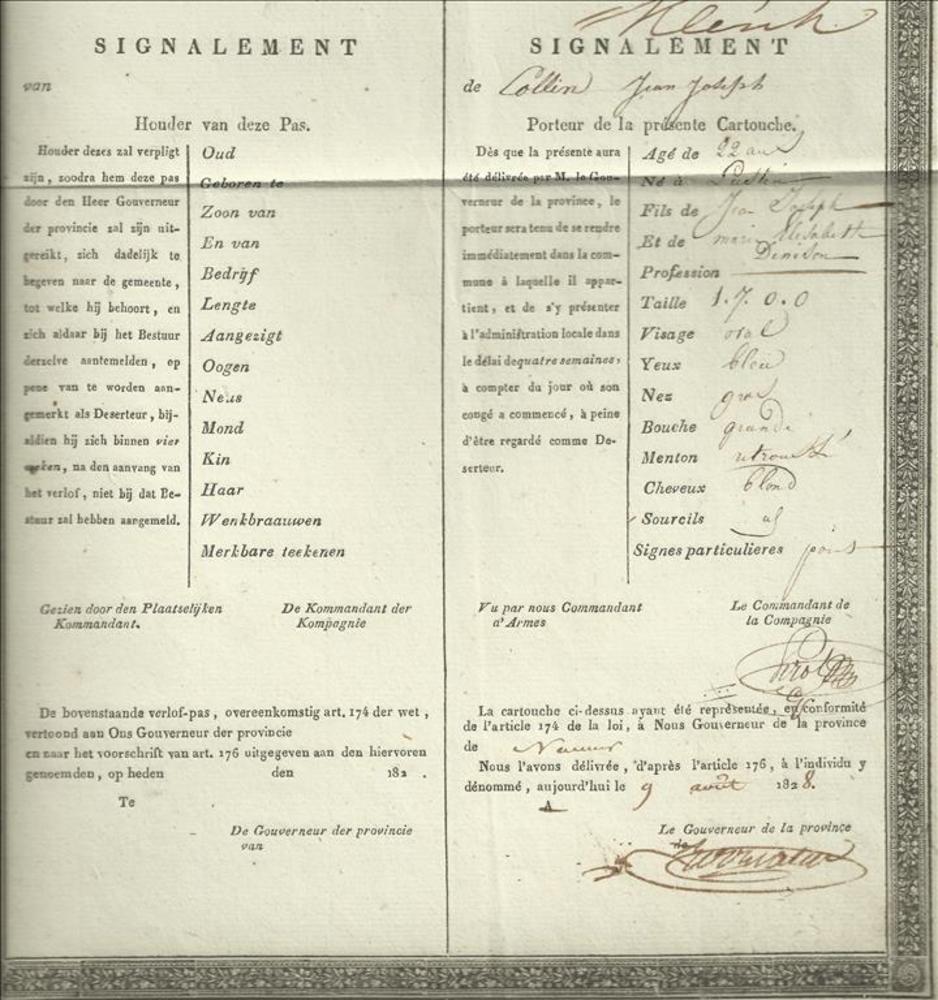 SIGNALEMENT
van
Houder van deze Pas.
Houder dezes zal verpligt
zijn, zoodra hem deze pas
door den Heer Gouverneur
der provincie zal zijn uit-
gereikt, zich dadelijk te
begeven naar de gemeente,
tot welke hij behoort, en
zich aldaar bij het Bestuur
derzelve aantemelden, op
pene van te worden aan-
gemerkt als Deserteur, bij-
aldien hij zich binnen vier
weken, na den aanvang van
het verlof, niet bij dat Be-
stuur zal hebben aangemeld.
Oud
Geboren te
Zoon van
En van
Bedrijf
Lengte
Aangezigt
Oogen
Neus
Mond
Kin
Haar
Wenkbraauwen
Merkbare teekenen
Gezien door den Plaatselijken
Kommandant.
De Kommandant der
Kompagnie
De bovenstaande verlof-pas, overeenkomstig art. 174 der wet,
vertoond aan Ons Gouverneur der provincie
en naar het voorschrift van art. 176 uitgegeven aan den hiervoren
genoemden, op heden den 182 .
Te
De Gouverneur der provincie
van
SIGNALEMENT
de Collin Jean Joseph
Porteur de la présente Cartouche.
Dès que la présente aura
été délivrée par M. le Gou-
verneur de la province, le
porteur sera tenu de se rendre
immédiatement dans la com-
mune à laquelle il appar-
tient, et de s'y présenter
à l'administration locale dans
le délai de quatre semaines,
à compter du jour où son
congé a commencé, à peine
d'être regardé comme Dé-
serteur.
Agé de 22 ans
Né à
Fils de Jean Joseph
Et de marie Elisabeth
Denison
Profession
Taille 1.7.0.0
Visage oval
Yeux bleu
Nez gros
Bouche grande
Menton retroussé
Cheveux blond
Sourcils id
Signes particulieres point
Vu par nous Commandant
d'Armes
Le Commandant de
la Compagnie
La cartouche ci-dessus ayant été représentée, en conformité
de l'article 174 de la loi, à Nous Gouverneur de la province
de Namur
Nous l'avons délivrée, d'après l'article 176, à l'individu y
dénommé, aujourd'hui le 9 août 1828.
A
Le Gouverneur de la province
de